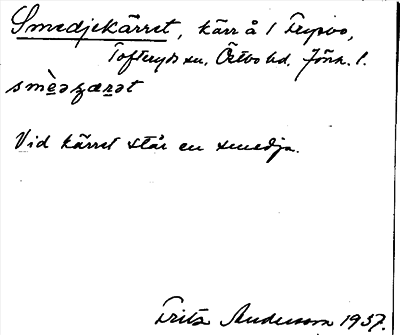 Smedjekärret, kärr å 1 Frysbo,
Tofteryds sn. Östbo hd. Jönk. l.
smèəȝæꞃət
Vid kärret står en smedja.
Fritz Andersson 1937.